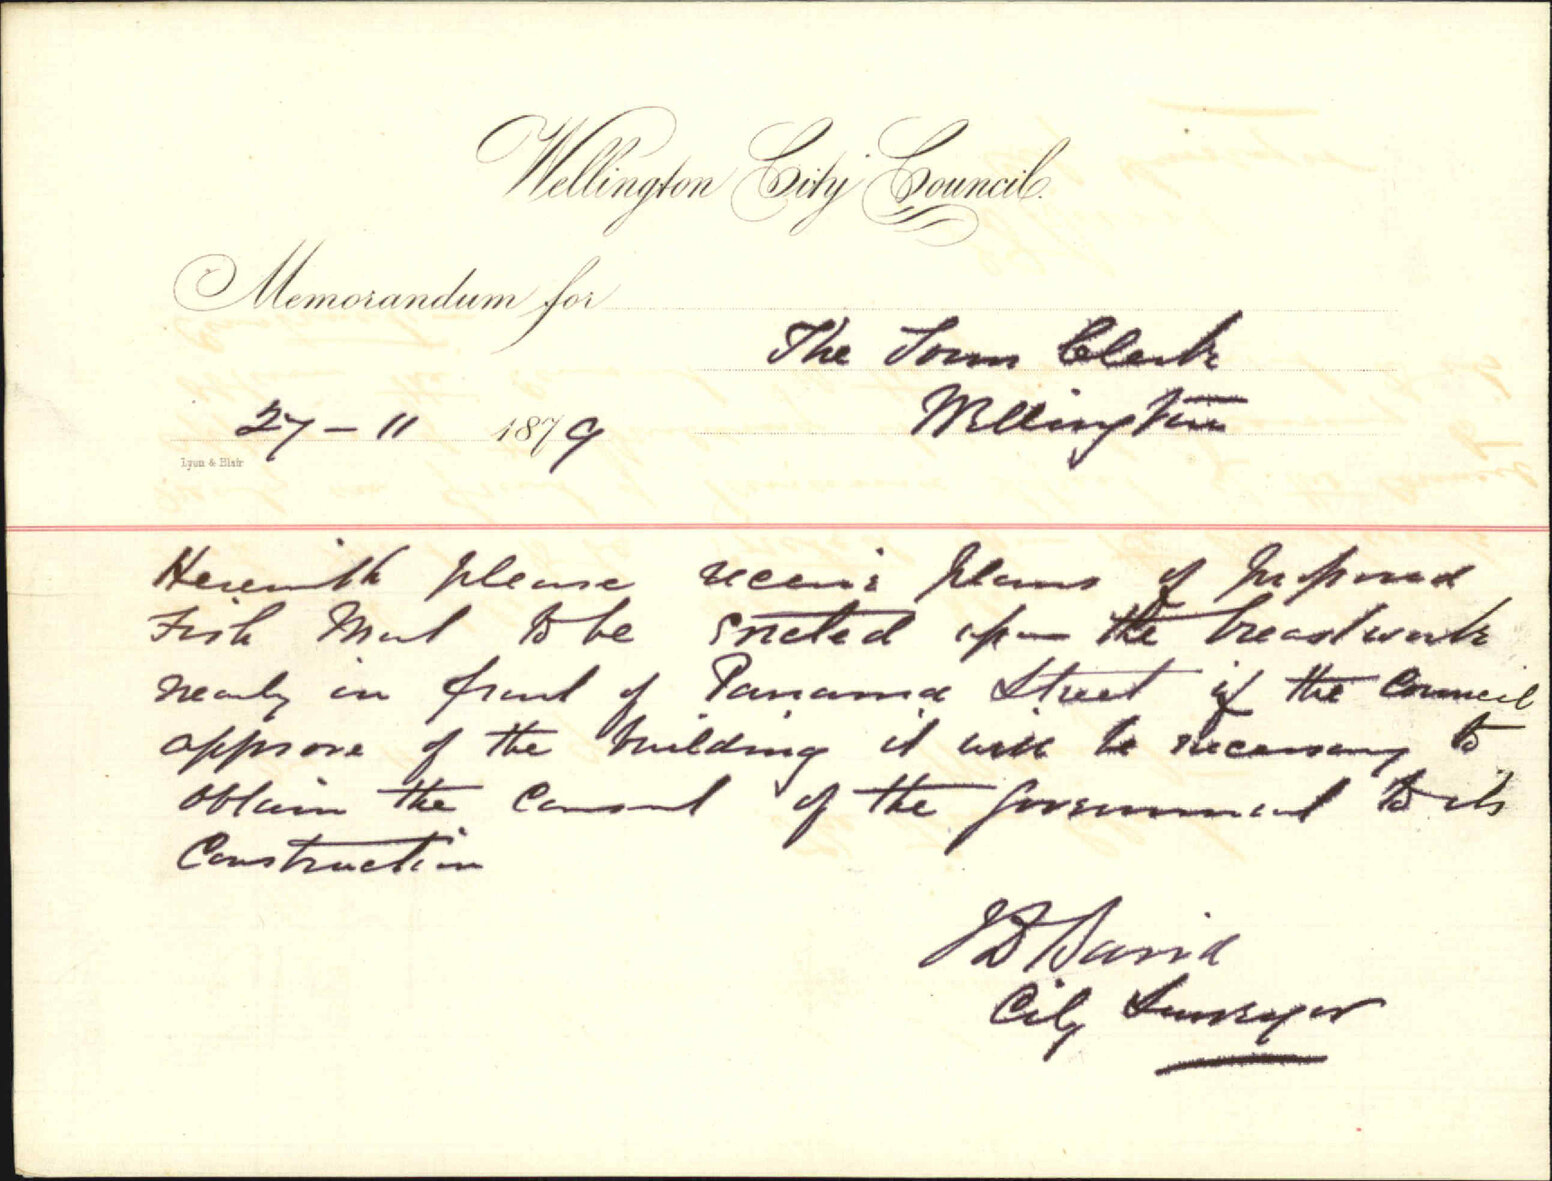 Wellington City Council.
Memorandum for
The Town Clerk
Wellington
27 - 11 1879
Lyon & Blair
Herewith please receive plans of proposed
Fish Mart to be erected upon the breastwork
nearly in front of Panama Street if the Council
approve of the building it will be necessary to
obtain the consent of the Government to its
Construction
J D Baird
City Surveyor